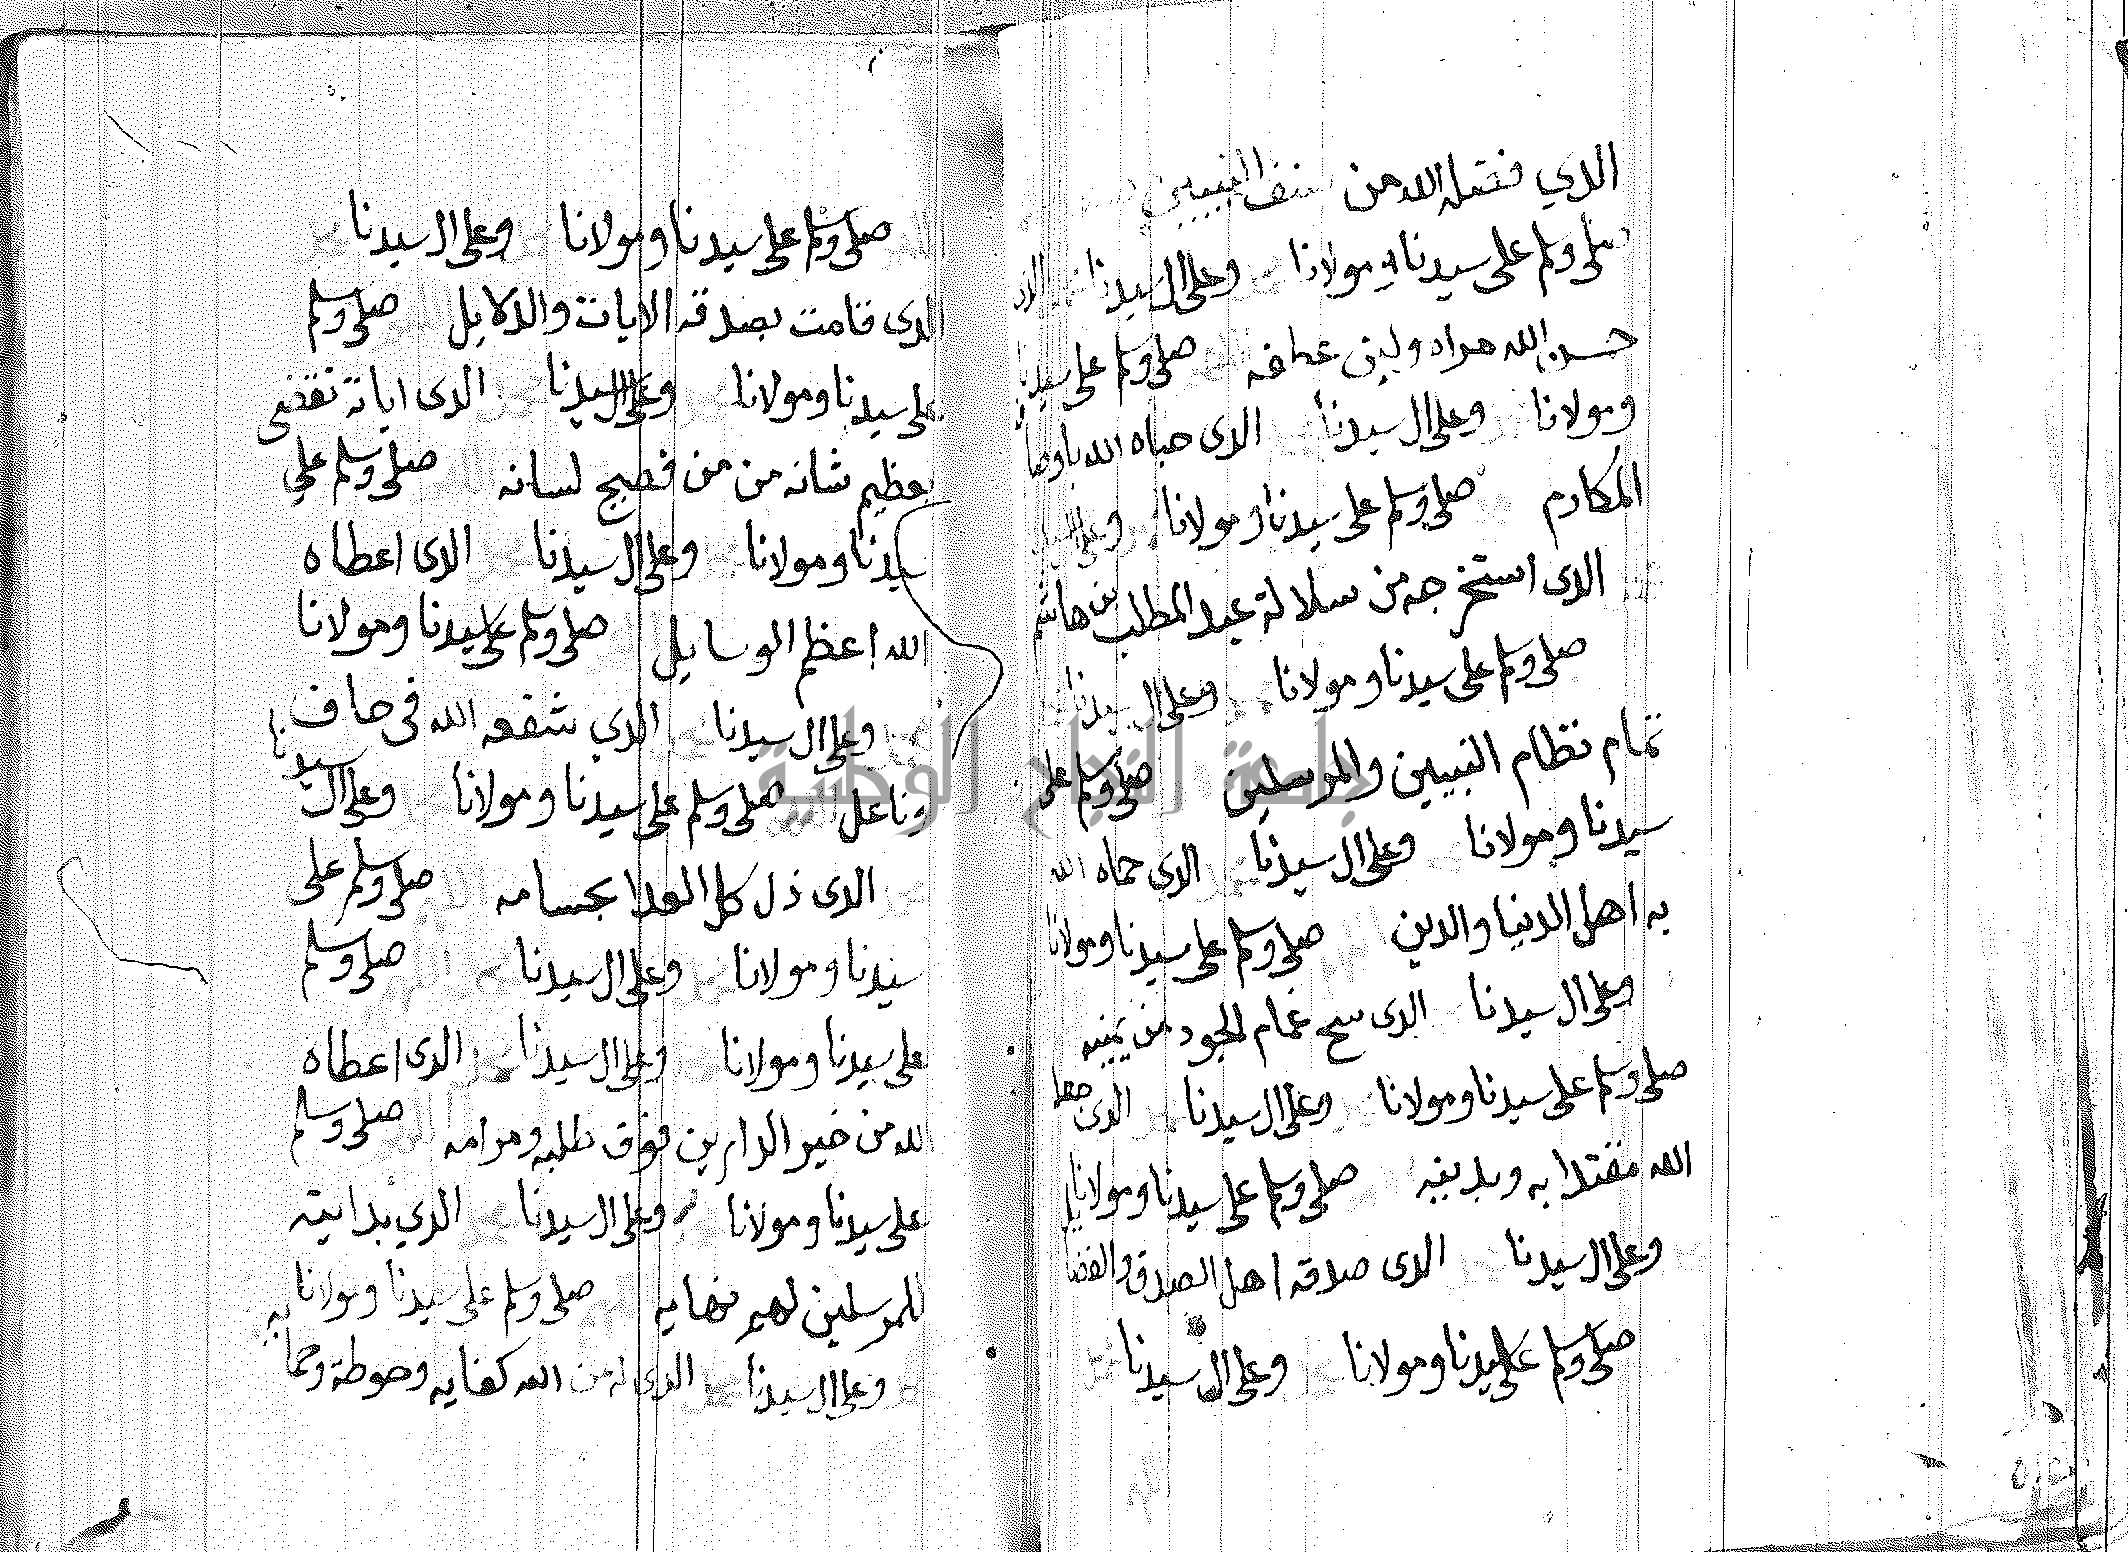 الذي فضله الله من
صلى وسلم على سيدنا ومولانا وعلى ال سيدنا
حسن الله مراد ولين عطفه صلى وسلم على سيدنا
ومولانا وعلى ال سيدنا الدى حباه الله باوصا
المكارم صلى وسلم على سيدنا ومولانا
الدى استخرجه من سلالة عبد المطلب بن هاشم
صلى وسلم على سيدنا ومولانا وعلى ال سيدنا
تمام نظام النبيين والمرسلين صلى وسلم على
سيدنا ومولانا وعلى ال سيدنا الدى حماه الله
به اهل الدنيا والدين صلى وسلم على سيدنا ومولانا
وعلى ال سيدنا الدى سح غمام الجود من يمينه
صلى وسلم على سيدنا ومولانا وعلى ال سيدنا الدى
الله مقتدا به وبدينه صلى وسلم على سيدنا ومولانا
وعلى ال سيدنا الدى صدقه اهل الصدق والفضا
صلى وسلم على سيدنا ومولانا وعلى ال سيدنا
صلى وسلم على سيدنا ومولانا وعلى ال سيدنا
الدى قامت بصدقه الايات والدلايل صلى وسلم
على سيدنا ومولانا وعلى ال سيدنا الدى
عظيم شانه من من فصيح لسانه صلى وسلم علي
سيدنا ومولانا وعلى ال سيدنا الدى اعطاه
الله اعظم الوسايل صلى وسلم على سيدنا ومولانا
وعلى ال سيدنا الذي شفعه الله فى حاف
وناعل صلى وسلم على سيدنا ومولانا وعلى ال سيدنا
الدى ذل كل العدا بحسامه صلى وسلم على
سيدنا ومولانا وعلى ال سيدنا صلى وسلم
على سيدنا ومولانا وعلى ال سيدنا الدى اعطاه
الله من خير الدارين فوق طلبه ومرامه صلى وسلم
على سيدنا ومولانا وعلى ال سيدنا الدي بدايته
للمرسلين لهم نهايه صلى وسلم على سيدنا ومولانا
وعلى ال سيدنا الدى له من الله كفايه وحوطة وحمايه
جامعة النجاح الوطنية